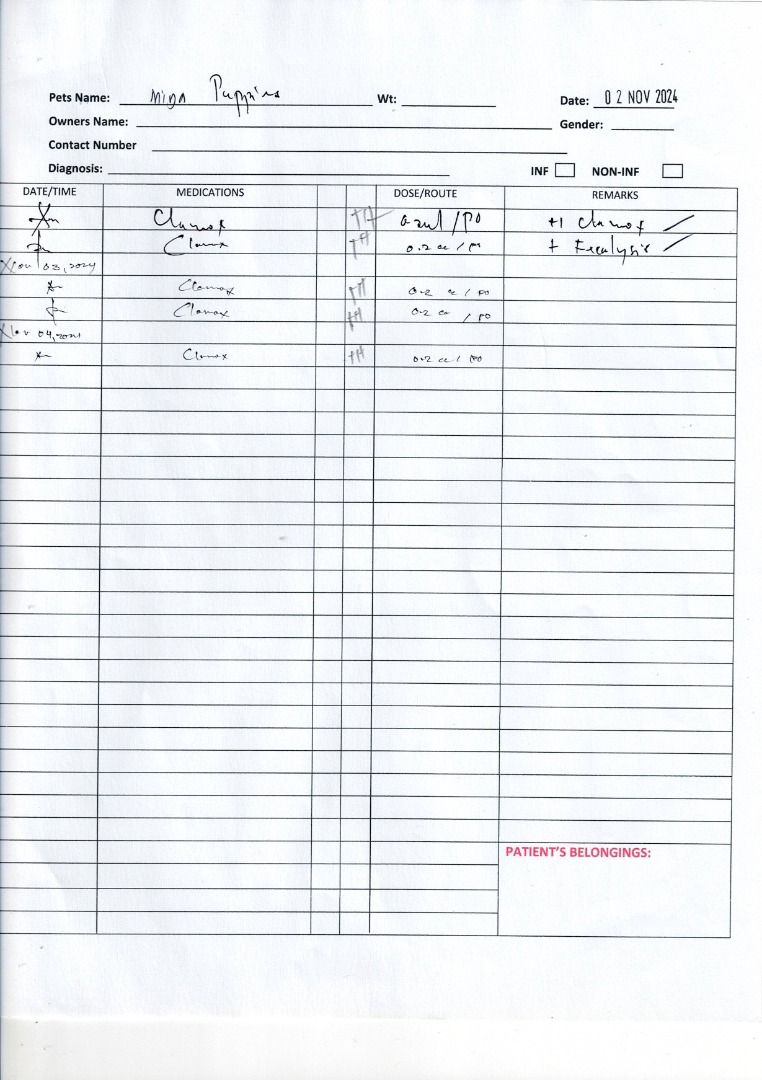 Pets Name: Miya Puppies Wt: Date: 02 NOV 2024
Owners Name: Gender:
Contact Number
Diagnosis: INF NON-INF
DATE/TIME MEDICATIONS DOSE/ROUTE REMARKS
Clamox /PO +1 Clamox
Clamox 0.2 cc / PO +
Nov 03, 2024
Clamox 0.2 cc / PO
Clamox 0.2 cc / PO
Nov 04, 2024
Clamox 0.2 cc / PO
PATIENT'S BELONGINGS: